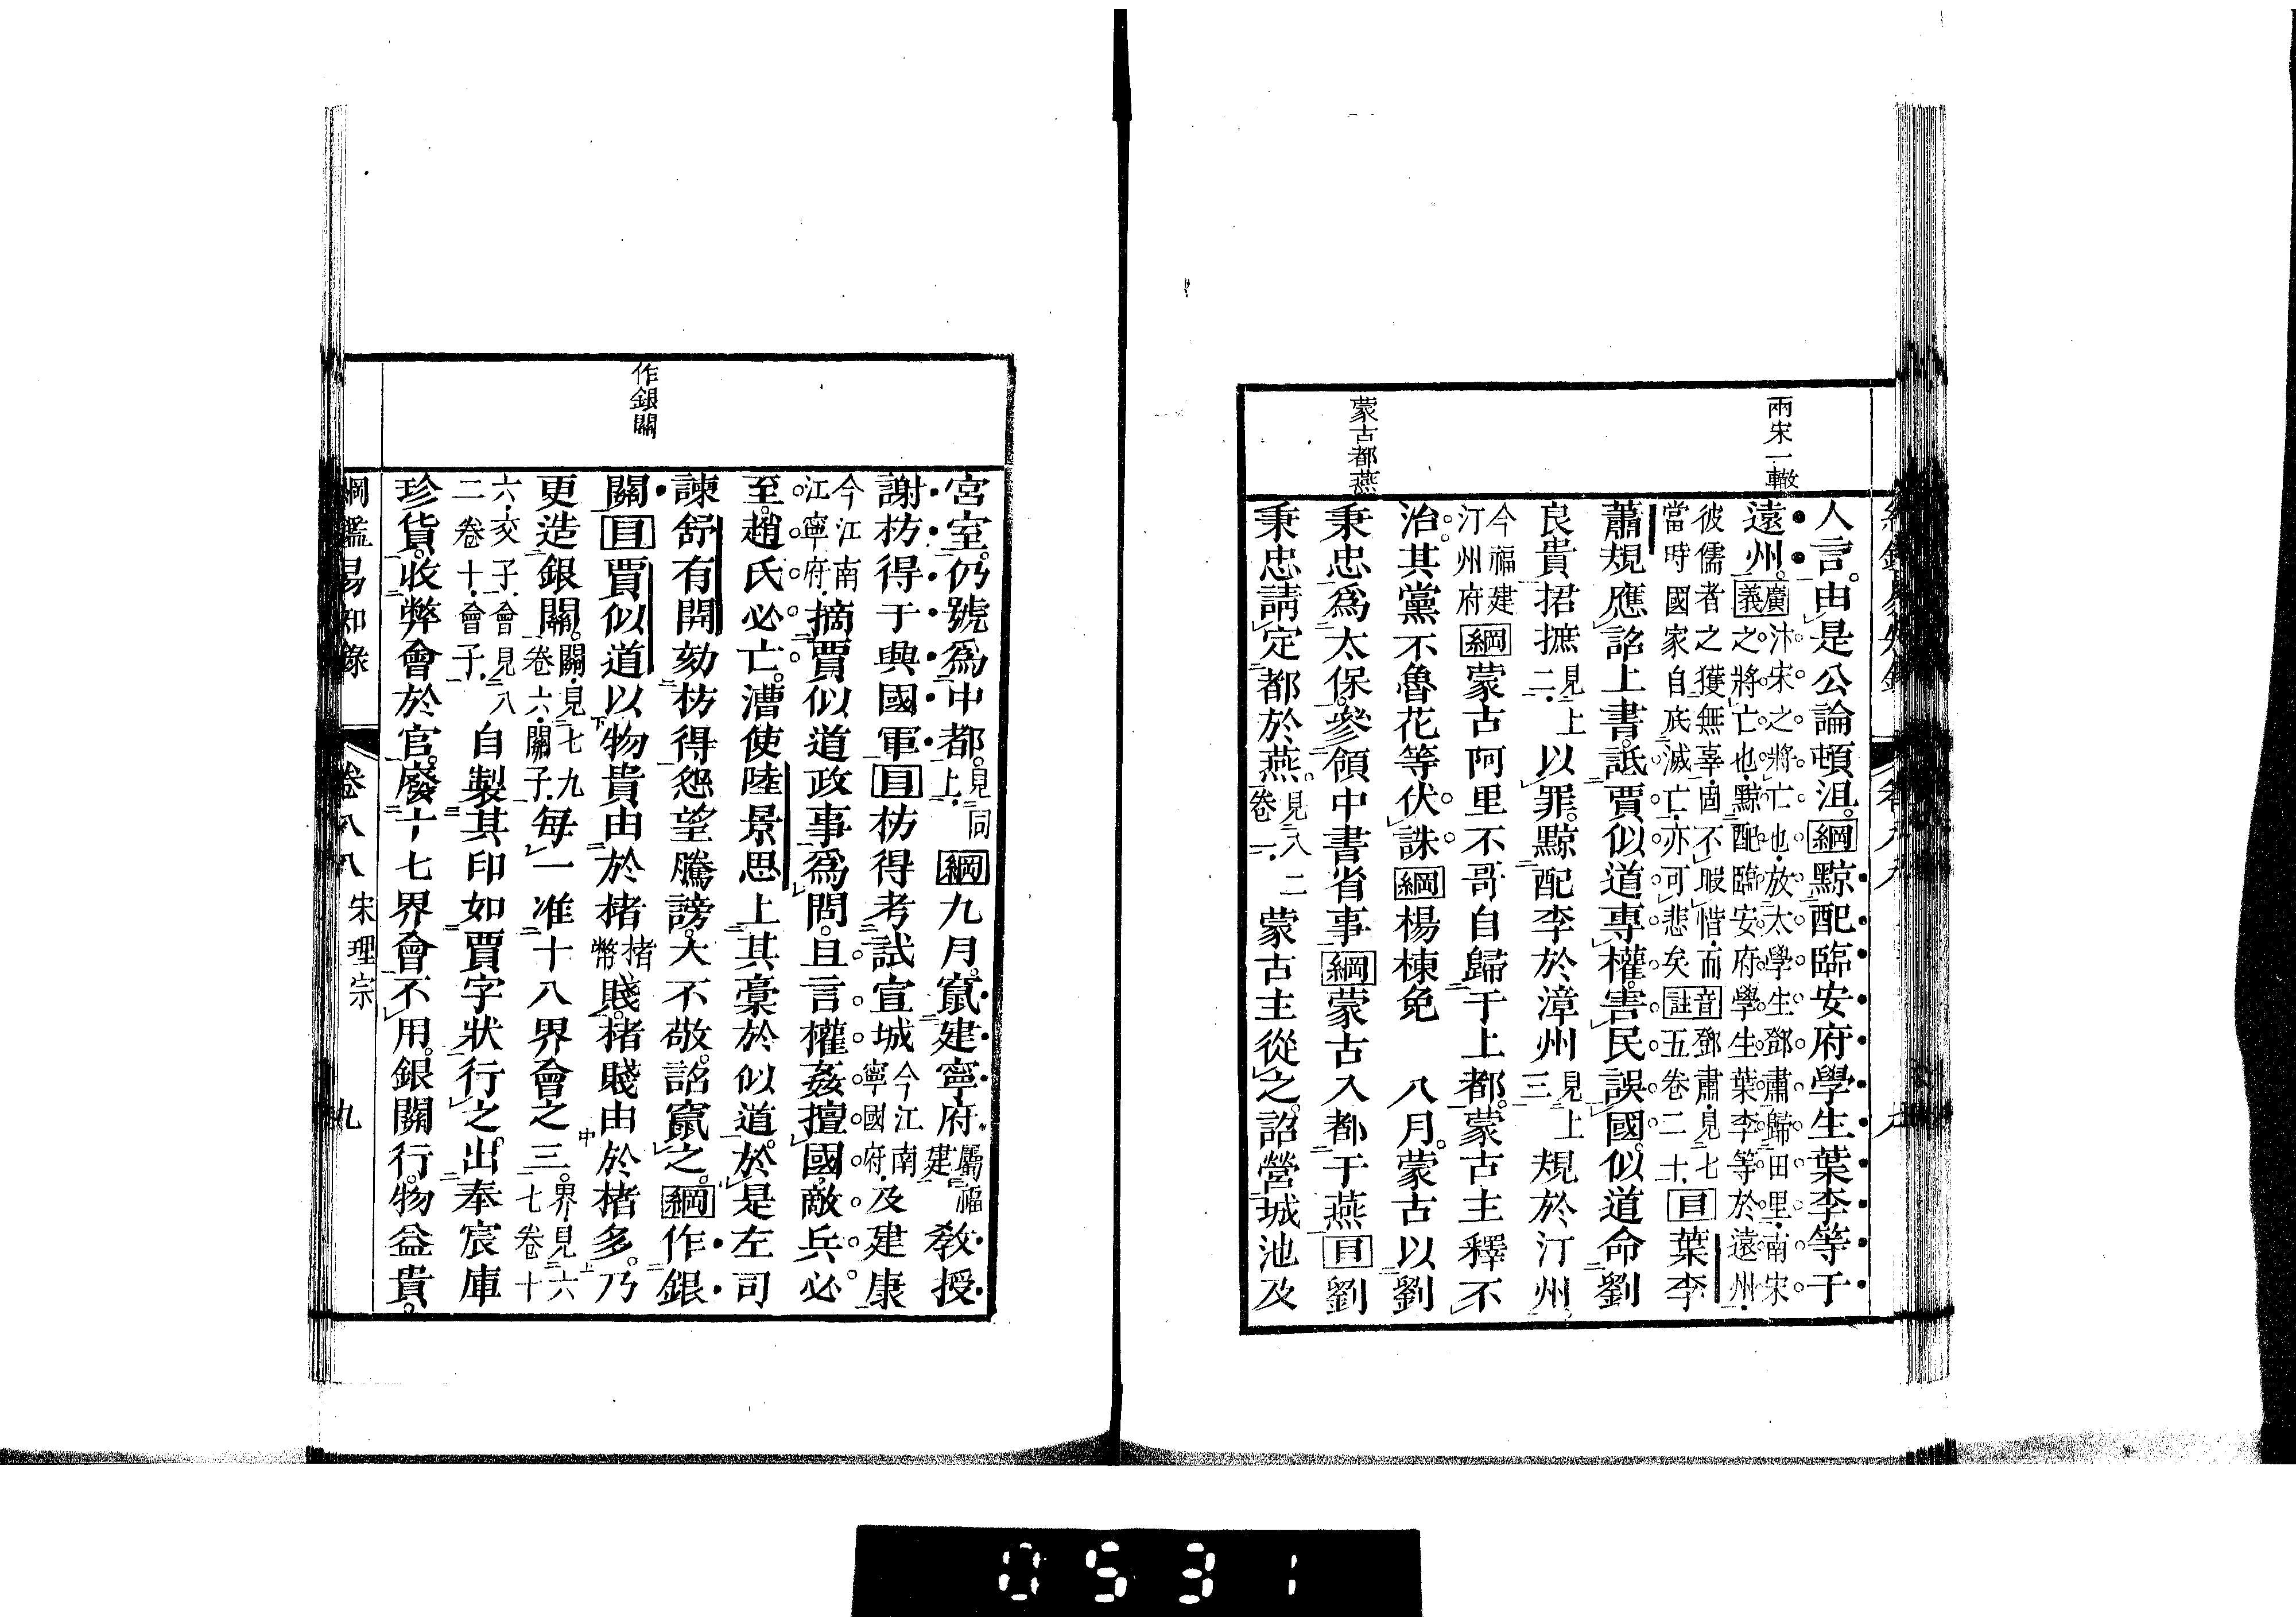 兩宋一轍
蒙古都燕
人言由是公論頓沮綱黥配臨安府學生葉李等于
遠州廣義汴宋之將亡也放太學生鄧肅歸田里南宋
之將亡也黥配臨安府學生葉李等於遠州
彼儒者之獲無辜固不暇惜而音註鄧肅見七
當時國家自底滅亡亦可悲矣五卷二十目葉李
蕭規應詔上書詆賈似道專權害民誤國似道命劉
良貴招摭見上二以罪黥配李於漳州見上三規於汀州
今福建汀州府綱蒙古阿里不哥自歸于上都蒙古主釋不
治其黨不魯花等伏誅綱楊棟免 八月蒙古以劉
秉忠爲太保參領中書省事綱蒙古入都于燕目劉
秉忠請定都於燕見八二卷一蒙古主從之詔營城池及
作銀關
宮室仍號爲中都見同上綱九月竄建寧府屬福建教授
謝枋得于興國軍目枋得考試宣城今江南寧國府及建康
今江南江寧府摘賈似道政事爲問且言權姦擅國敵兵必
至趙氏必亡漕使陸景思上其稾於似道於是左司
諫舒有開劾枋得怨望騰謗大不敬詔竄之綱作銀
關目賈似道以物貴由於楮楮幣賤楮賤由於楮多乃
更造銀關關見七九卷六關子每一准十八界會之三界見六七卷十
六交子會見八二卷十會子自製其印如賈字狀行之出奉宸庫
珍貨收弊會於官廢十七界會不用銀關行物益貴
綱鑑易知錄 卷八八 宋理宗 九
0531